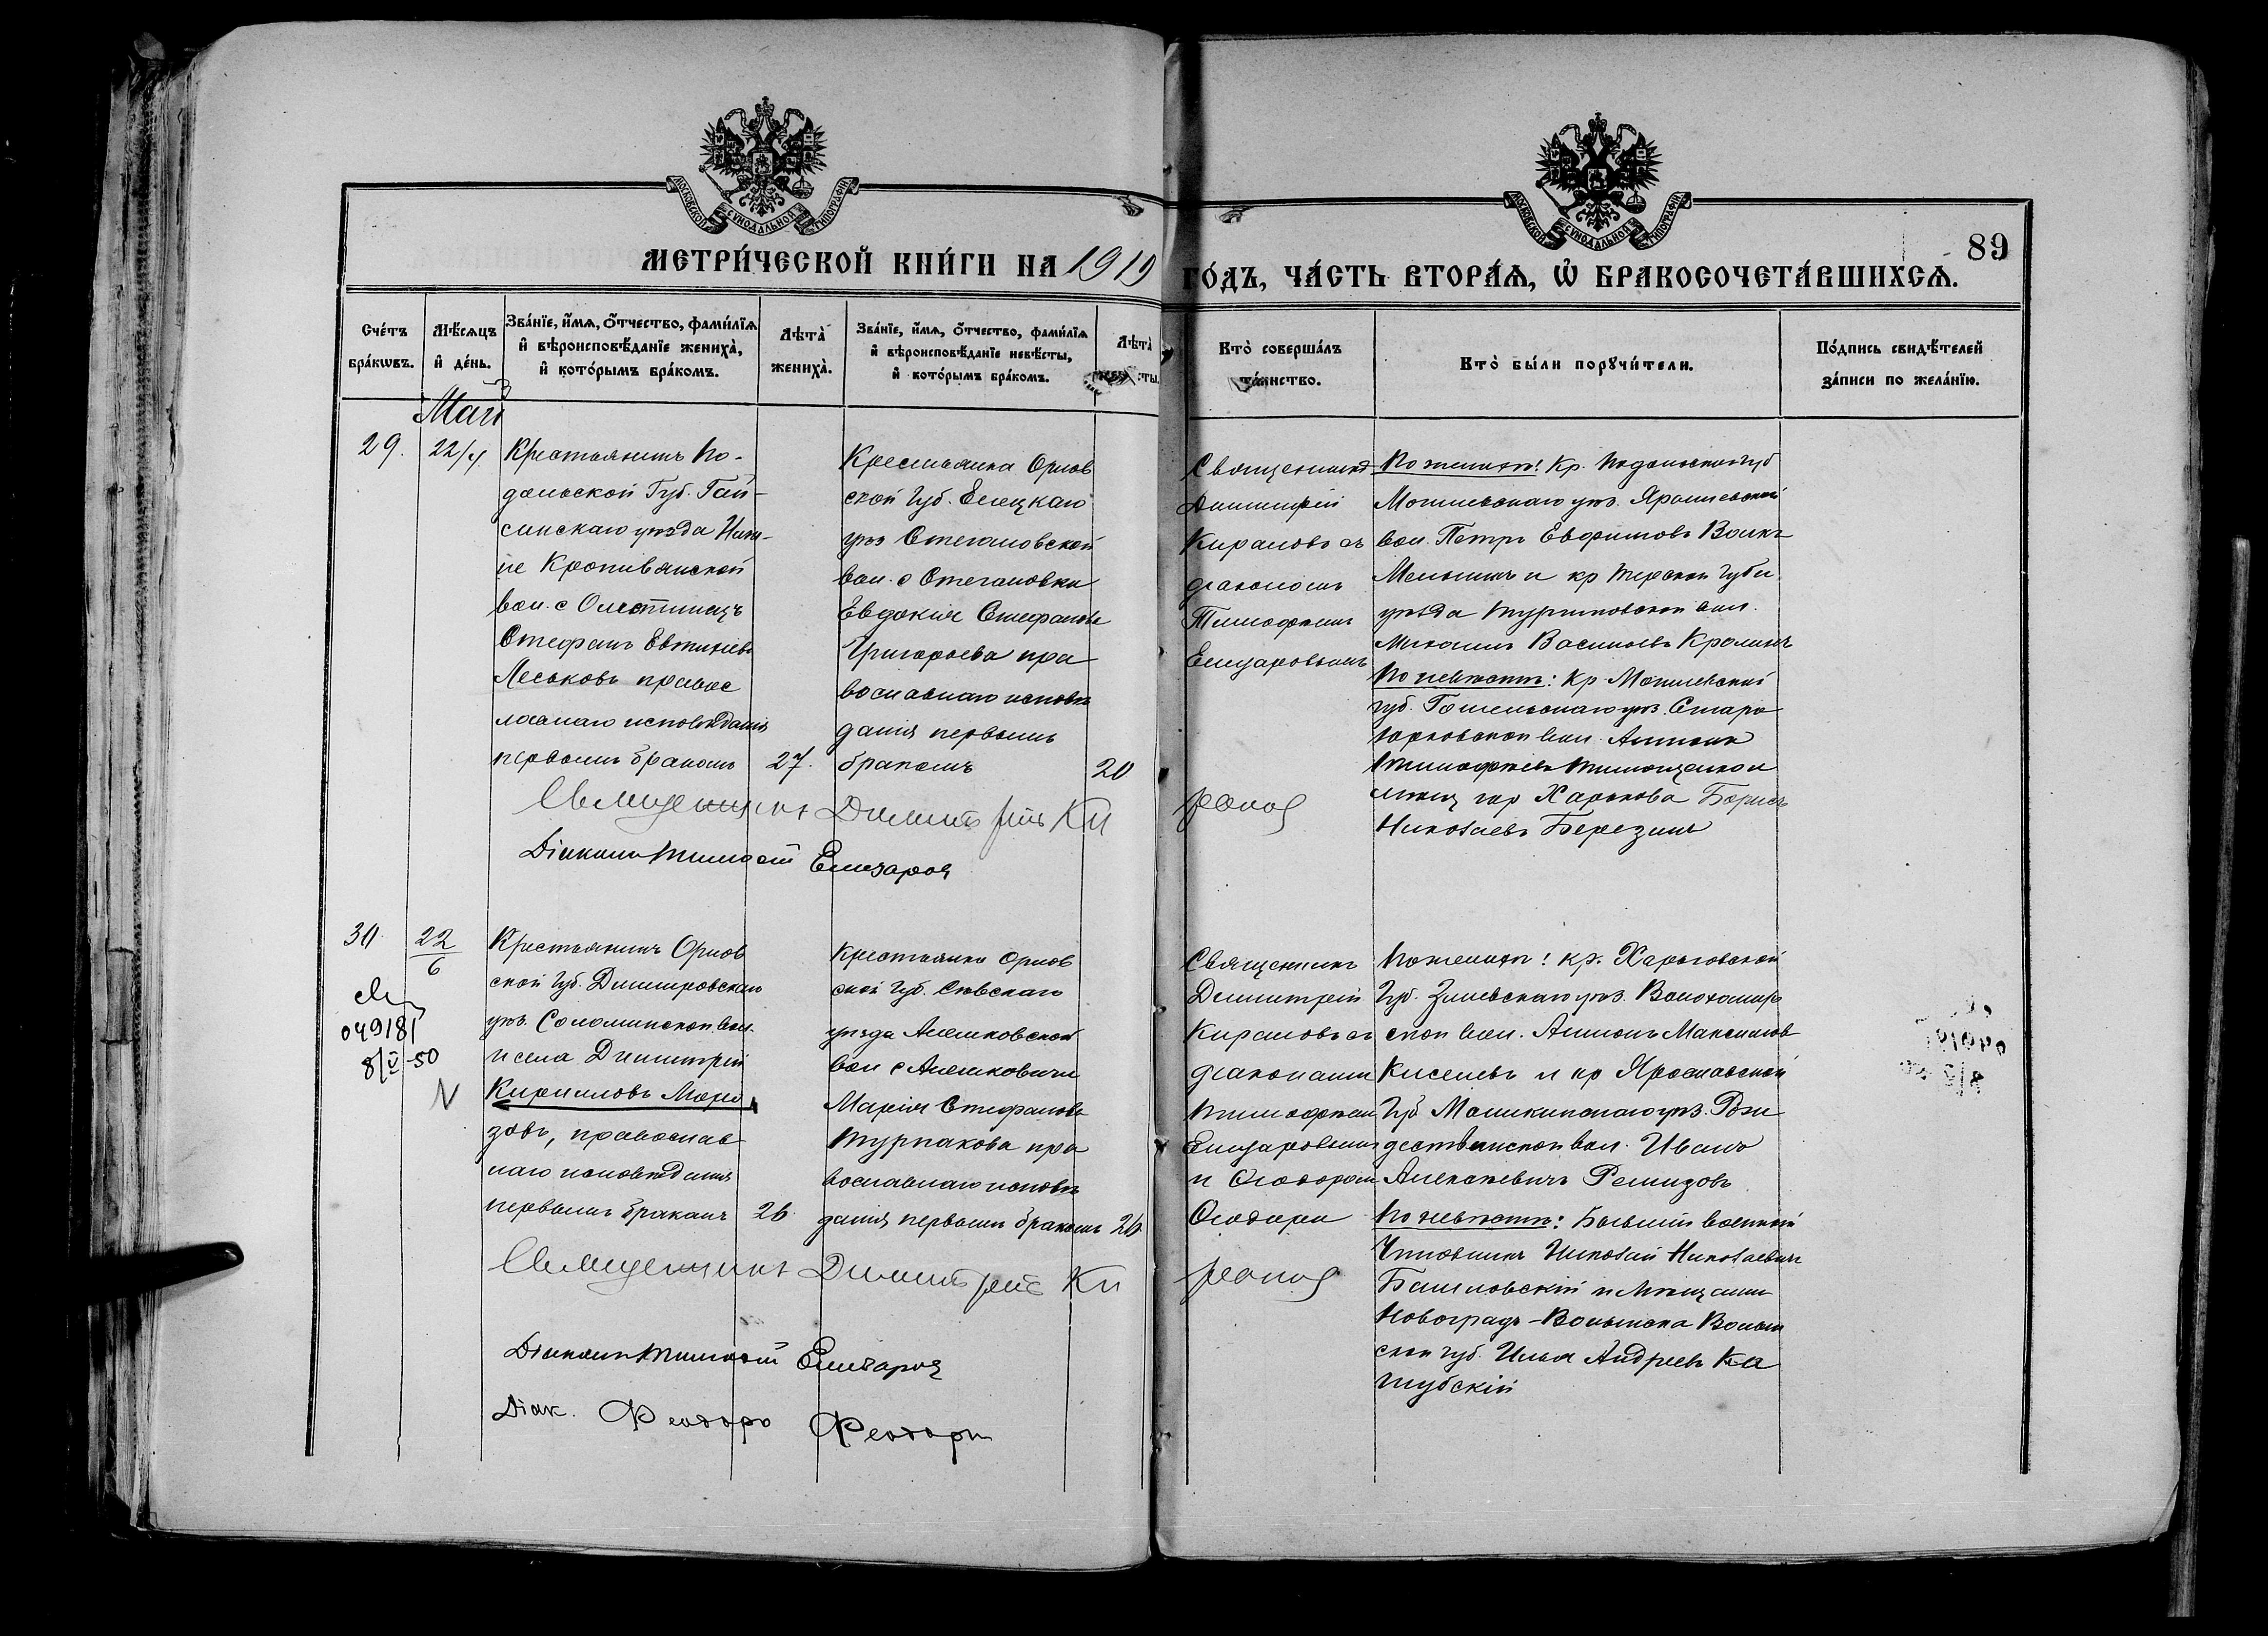 МОСКОВСКОЙ СУНОДАЛЬНОЙ ТИПОГРАФІИ
МОСКОВСКОЙ СУНОДАЛЬНОЙ ТИПОГРАФІИ
89
МЕТРИ́ЧЕСКОЙ КНИ́ГИ НА 1919 ГО́ДЪ, ЧА́СТЬ ВТОРА́Ѧ, Ѽ БРАКОСОЧЕТА́ВШИХСѦ.
Сче́тъ бра́кѡвъ.
Мѣ́сѧцъ и҆ де́нь.
Зва́нїе, и҆́мѧ, ѻ҆́тчество, фами́лїѧ
и҆ вѣроисповѣ́данїе жениха̀,
и҆ кото́рымъ бра́комъ.
Лѣта̀ жениха̀.
Зва́нїе, и҆́мѧ, ѻ҆́тчество, фами́лїѧ
и҆ вѣроисповѣ́данїе невѣ́сты,
и҆ кото́рымъ бра́комъ.
Лѣта̀
Кто̀ соверша́лъ
та́инство.
Кто̀ бы́ли порꙋчи́тели.
По́дпись свидѣ́телей
за́писи по жела́нїю.
Май
29.
Крестьянинъ По-
дольской Губ. Гай-
синскаго уѣзда
не Кропивянской
вол. с
Стефанъ Евтихіевъ
Леськовъ правос
лавнаго исповѣданія
первымъ бракомъ
27.
Крестьянка Орлов
ской Губ. Елецкаго
уѣз Стегаловской
вол. с Стегаловки
Евдокія Стефанова
Григорьева пра
вославнаго исповѣ
данія первымъ
бракомъ
20
Священникъ
Димитрій
Кирановъ съ
діакономъ
Тимофеемъ
Елизаровымъ
По женихѣ: Кр. Подольской губ
Могилевскаго уѣз. Ярошевской
вол. Петръ Евфимовъ Волкъ
и кр Тверской Губ и
уѣзда Тургиновской вол.
Михаилъ Васильевъ
По невѣстѣ: Кр Могилевской
губ. Гомельскаго уѣз. Старо
вол.
Тимофеевъ Тимощенко и
мѣщ гор Харькова Борисъ
Николаевъ Березинъ
Священникъ Димитрій Ки рановъ
Діаконъ Тимофей Елизаровъ
30.
22
6
049181
8/V-50
N
Крестьянинъ Орлов
ской Губ. Дмитровскаго
уѣз. Соломинской вол.
и села Димитрій
Кирилловъ Моро
зовъ, православ
наго исповѣданія
первымъ бракомъ
26.
Крестьянка Орлов
ской Губ. Сѣвскаго
уѣзда Алешковской
вол с Алешковичи
Марія Стефанова
Турнакова пра
вославнаго исповѣ
данія первымъ бракомъ
Священникъ
Димитрій
Кирановъ съ
діаконами
Тимофеемъ
Елизаровымъ
и Ѳеодоромъ
По женихѣ: кр. Харьковской
Губ. Зміевскаго уѣз. Волохояр
ской вол. Антонъ Максимов
Киселевъ и кр Ярославской
Губ Мышкинскаго уѣз. Рож
дественской вол. Иванъ
Алексѣевичъ Ремизовъ
По невѣстѣ: Бывшій военный
Чиновникъ Николай Николаевичъ
Башловскій и Мѣщанин
Новоградъ-Волынска Волын
ской губ. Илья Андреевъ Ка
шубскій
Священникъ Димитрій Ки рановъ
Діаконъ Тимофей Елизаровъ
Діак. Феодоръ